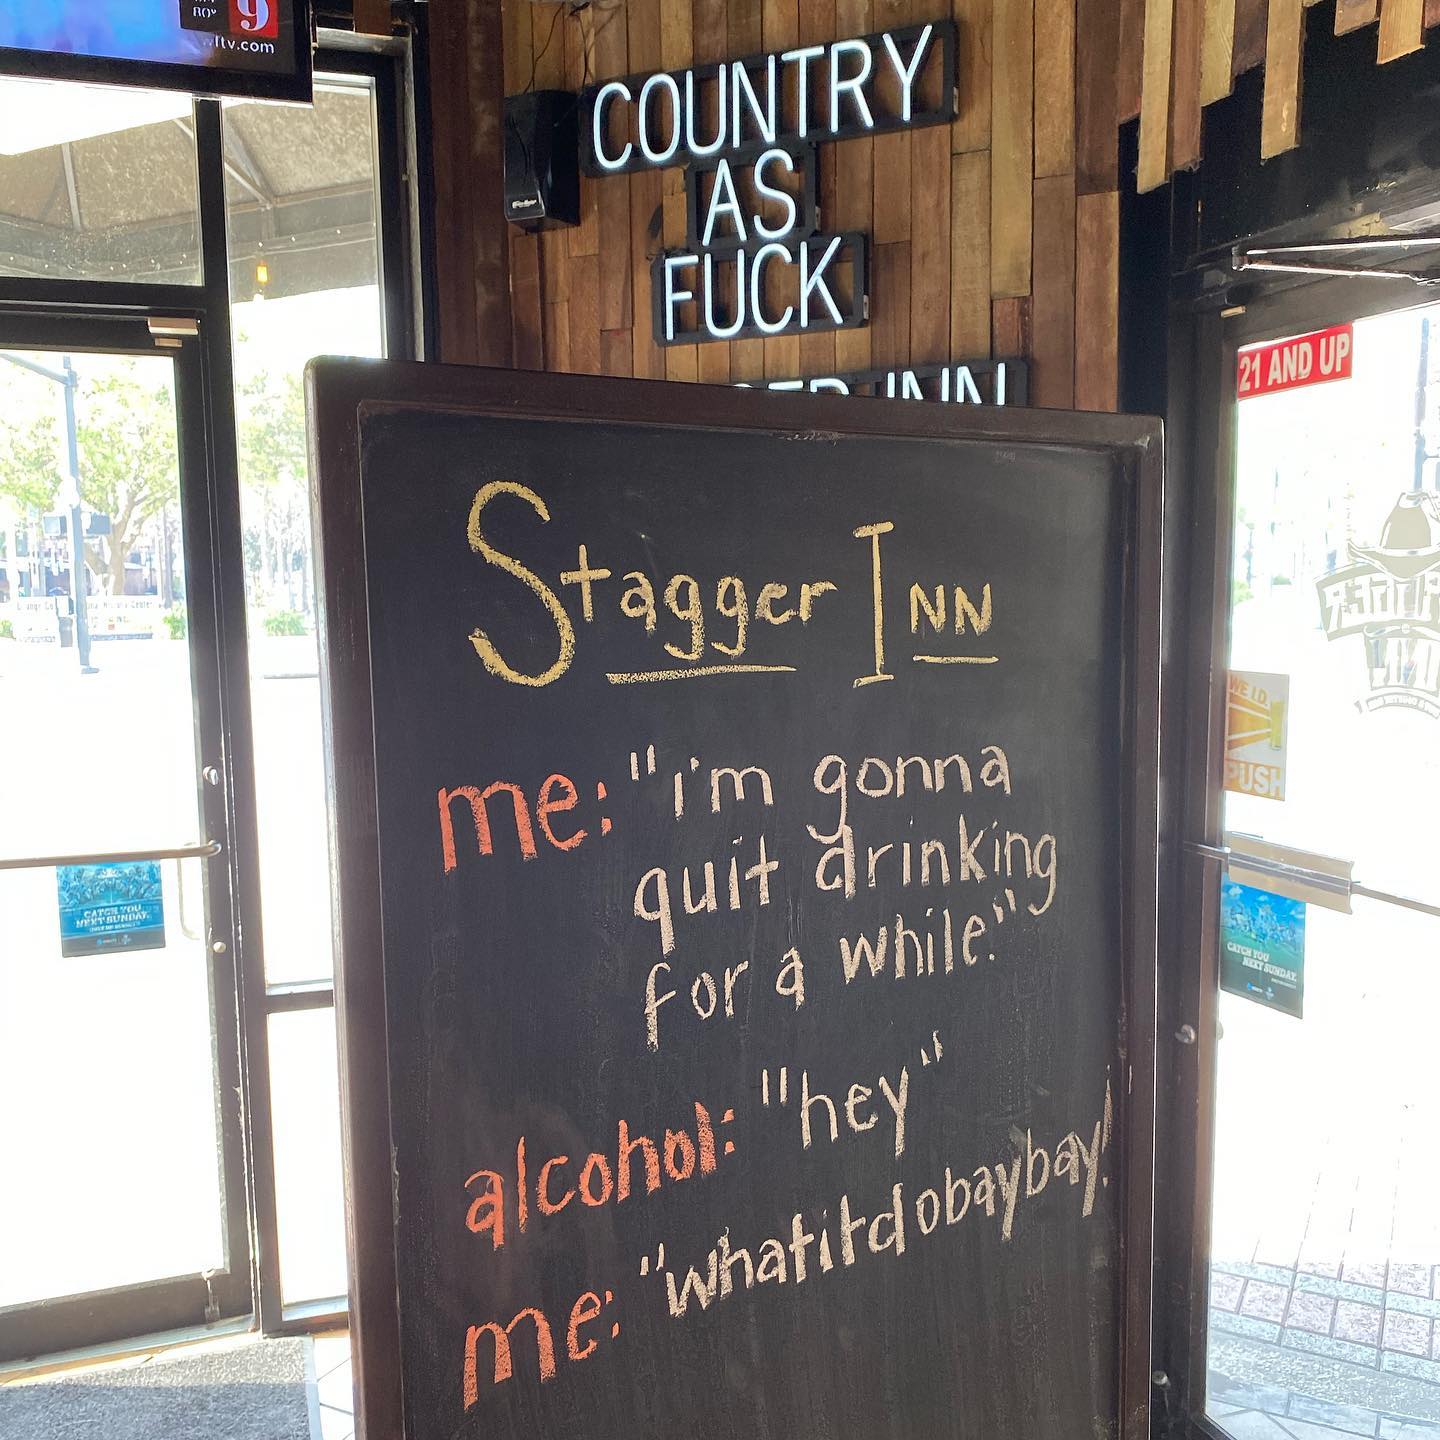 80°
9
wftv.com
COUNTRY
AS
FUCK
INN
21 AND UP
Stagger Inn
me: "i'm gonna
quit drinking
for a while."
alcohol: "hey"
me: "whatitdobaybay!
WE I.D.
PUSH
INN
CATCH YOU
NEXT SUNDAY.
CATCH YOU
NEXT SUNDAY.